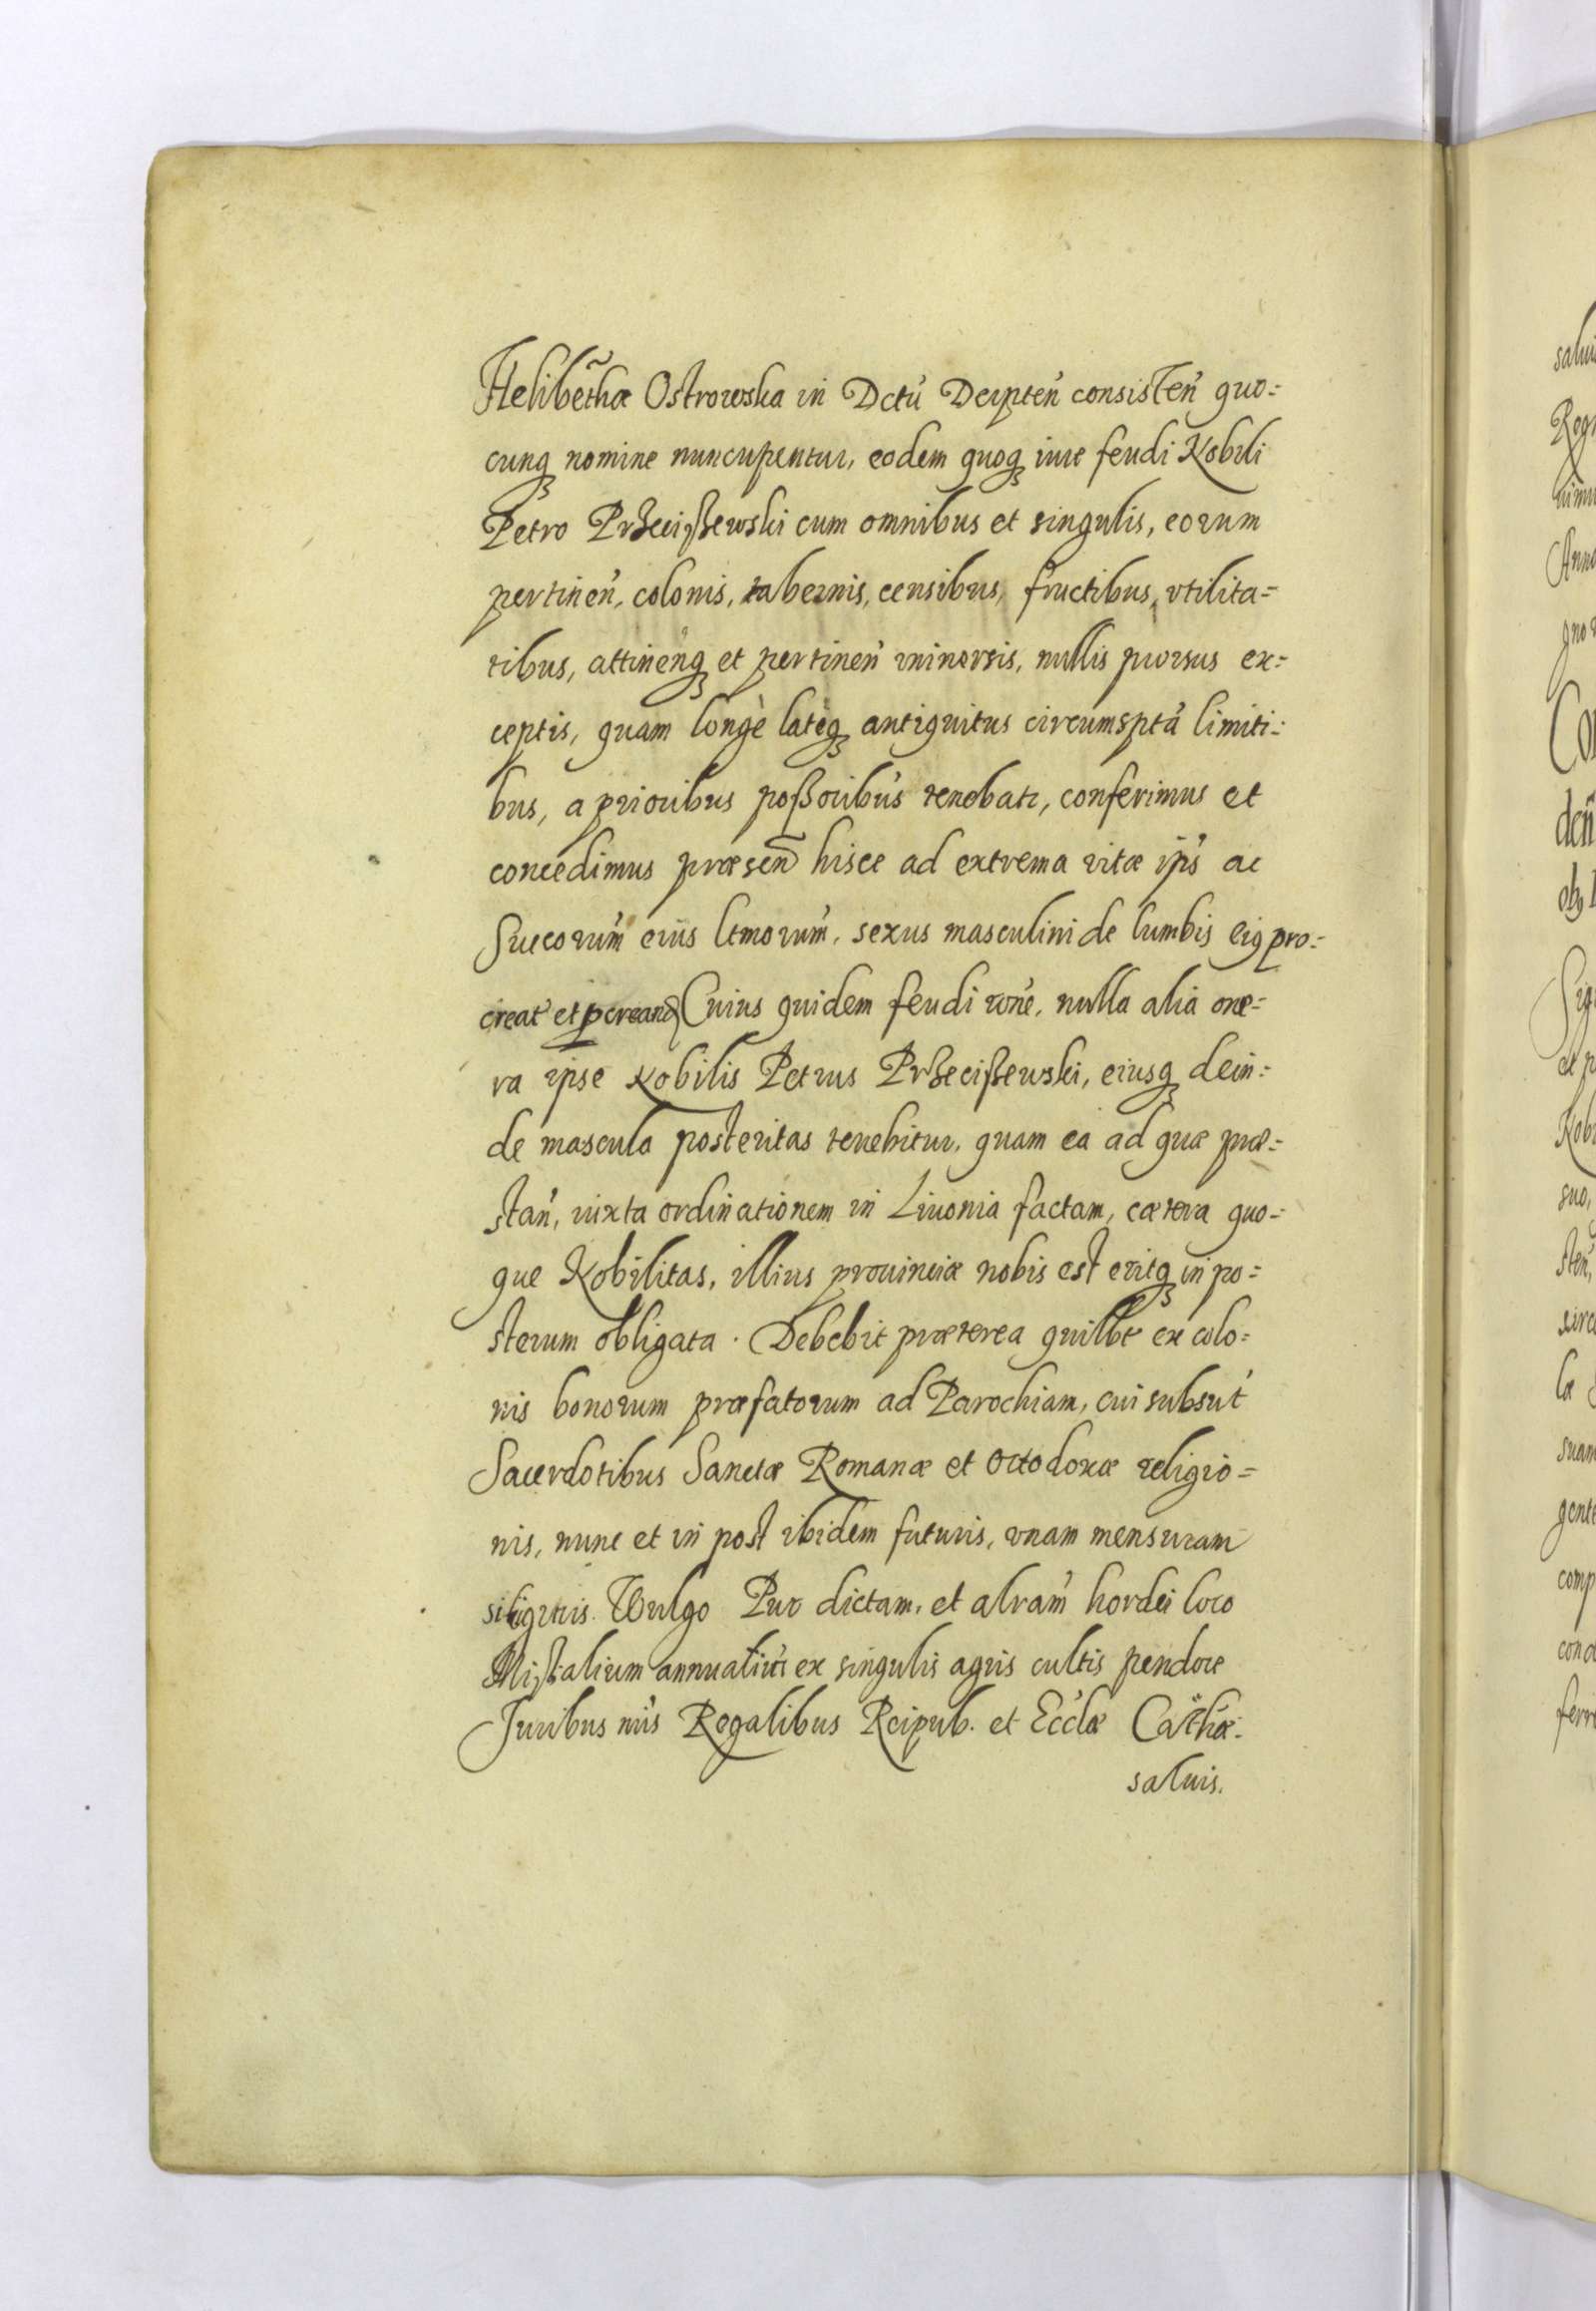 Helibethæ Ostrowska in Dctu Derpten consisten quo=
cunq nomine nuncupentur, eodem quoq iure feudi Nobili
Petro Przecißewski cum omnibus et singulis, eorum
pertinen, colonis, tabernis, censibus, fructibus, vtilita=
tibus, attinenq et pertinen vniuersis, nullis prorsus ex=
ceptis, quam longè latèq antiquitus circumspta limiti=
bus, a prioribus possoribus tenebatr, conferimus et
concedimus præsen hisce ad extrema vitæ ips ac
Succorum eius ltmorum, sexus masculini de lumbis eiq pro=
creat et pcreand Cuius quidem feudi rone, nulla alia one=
ra ipse Nobilis Petrus Przecißewski, eiusq dein=
de mascula posteritas tenebitur, quam ea ad quæ præ=
stan, iuxta ordinationem in Liuonia factam, cætera quo=
que Nobilitas, illius prouinciæ nobis est eritq in po=
sterum obligata. Debebit præterea quilbt ex colo=
nis bonorum præfatorum ad Parochiam, cui subsut
Sacerdotibus Sanctæ Romanæ et Ortodoxæ religio=
nis, nunc et in post ibidem futuris, vnam mensuram
siliginis Wulgo Pur dictam, et alram hordei loco
Missalium annuatim ex singulis agris cultis pendere
Iuribus nris Regalibus Reipub. et Ecclæ Cathæ
saluis.